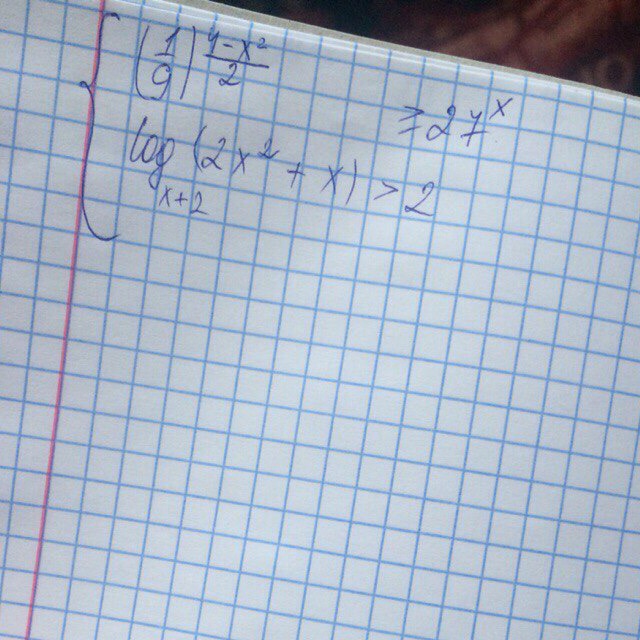 (1/9)^((4-x²)/2) ≥ 27^x
log_{x+2}(2x² + x) > 2